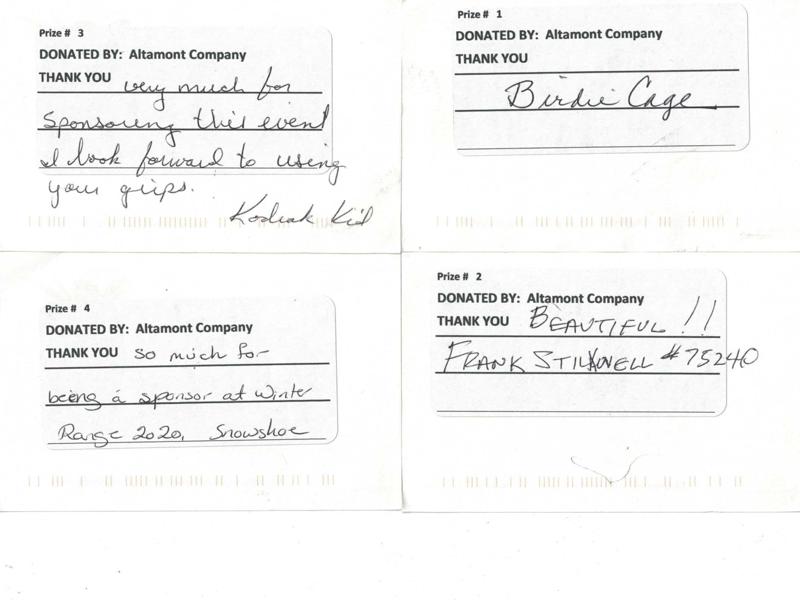 Prize # 3
DONATED BY: Altamont Company
THANK YOU very much for
sponsoring this event
I look forward to using
your grips.
Kodiak Kid
Prize # 1
DONATED BY: Altamont Company
THANK YOU
Birdie Cage
Prize # 4
DONATED BY: Altamont Company
THANK YOU so much for
being a sponsor at Winter
Range 2020, Snowshoe
Prize # 2
DONATED BY: Altamont Company
THANK YOU BEAUTIFUL!!
FRANK #75240